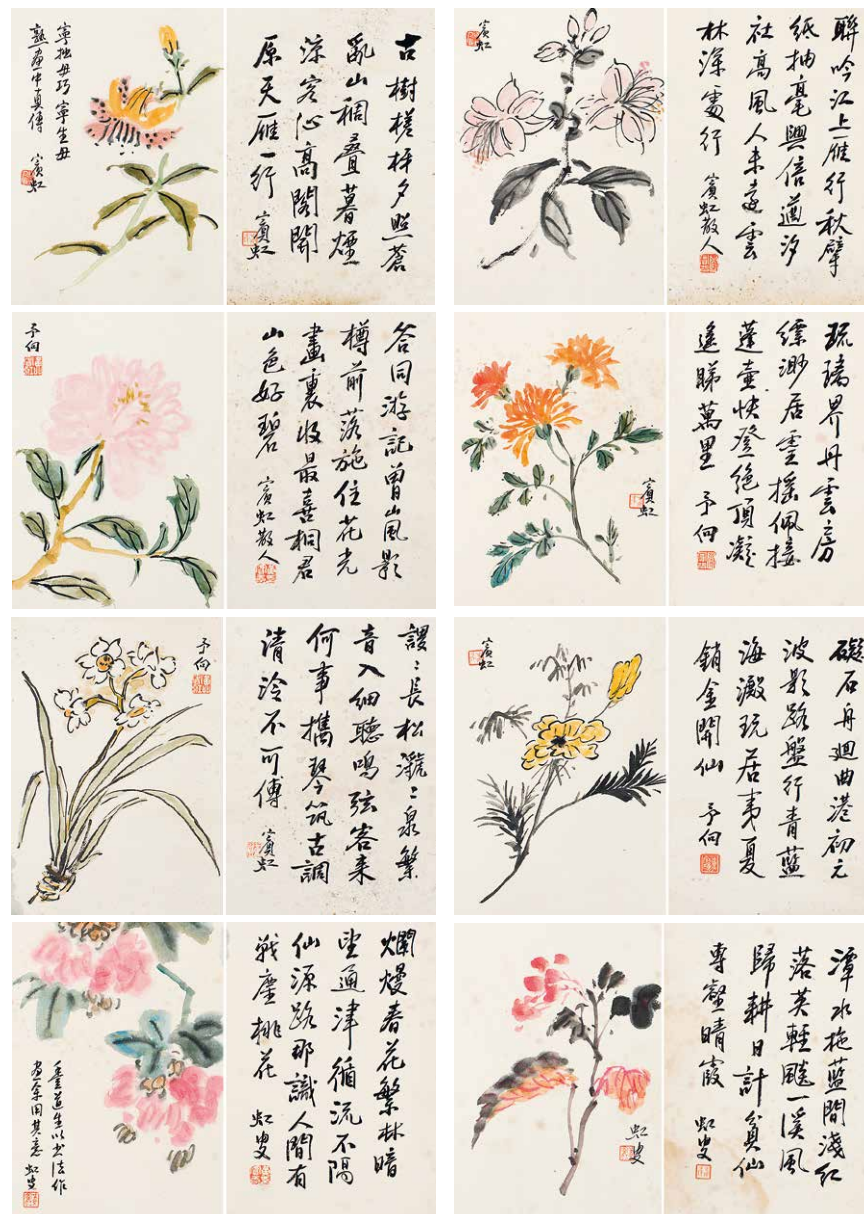 寧拙毋巧寧生毋
熟畫中真傳
賓虹
古樹槎枒夕照蒼
亂山稠疊暮煙
涼客心高閣開
原天雁一行
賓虹
賓虹
聯吟江上雁行秋擘
紙抽毫興倍遒汐
社高風人未遠雲
林深處行
賓虹散人
予向
答同游記曾山風影
樽前落施住花光
畫裏收最喜桐君
山色好碧
賓虹散人
賓虹
琉璃界丹雲房
縹渺居雲搖佩接
蓬壺快登絕頂凝
遙睇萬里
予向
予向
謖〻長松瀌〻泉繁
音入細聽鳴弦客來
何事攜琴筑古調
清泠不可傳
賓虹
賓虹
礙石舟迴曲港初元
波影路盤行青藍
海澱玩居夷夏
銷金開仙
予向
董道生以書法作
畫余用其意
虹叟
爛熳春花繁林暗
望通津循流不隔
仙源路那識人間有
戰塵桃花
虹叟
虹叟
潭水拖藍間淺紅
落英輕颺一溪風
歸耕日計負仙
專壑晴霞
虹叟